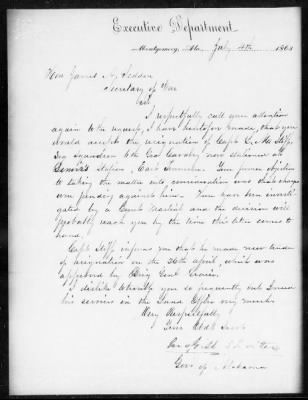 Executive Department.
Montgomery, Ala. July 4th 1863
Hon James A. Seddon
Secretary of War
Sir
I respectfully call your attention
again to the request, I have heretofore made, that you
would accept the resignation of Capt
Squadron 6th Cavalry now stationed at
Station, East Tennessee. Your former objection
to taking the matter into consideration was that charges
were pending against him. They have been investi
gated by a Court Martial and the decision will
probably reach you by the time this letter comes to
hand.
Capt informs me that he made new tender
of resignation on the 26th April, which was
approved by Brig Genl
I dislike to trouble you so frequently but I need
his services in the Land Office very much.
Very Respectfully
Your Obdt Servt
Gov of Alabama